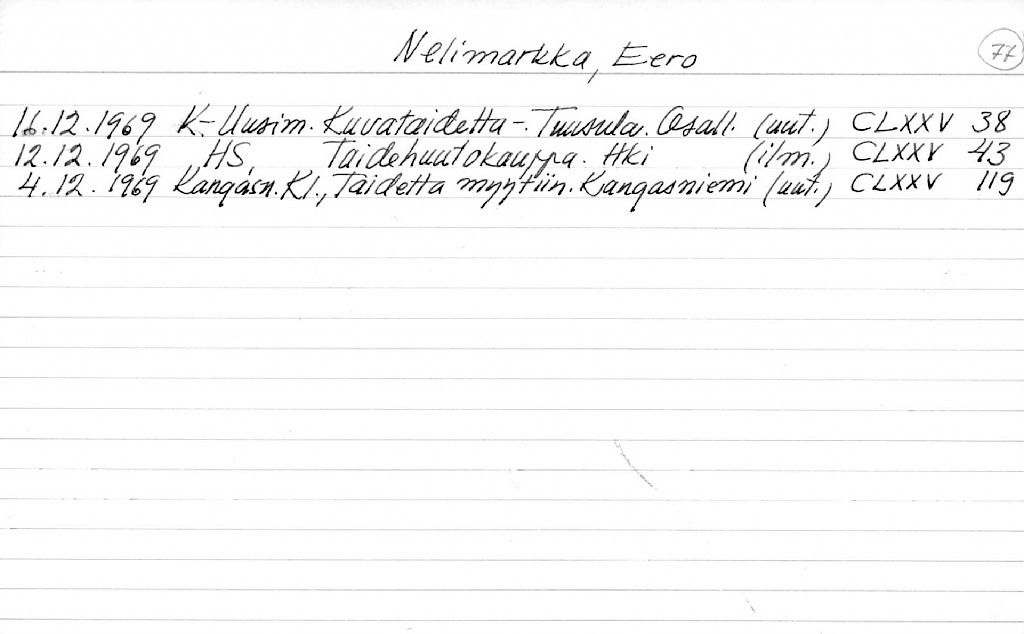 Nelimarkka, Eero
77
16.12.1969 K-Uusim. Kuvataidetta-. Tuusula. Osall. (uut.) CLXXV 38
12.12.1969 HS, Taidehuutokauppa. Hki (ilm.) CLXXV 43
4.12.1969 Kangasn. Kl., Taidetta myytiin. Kangasniemi (uut.) CLXXV 119